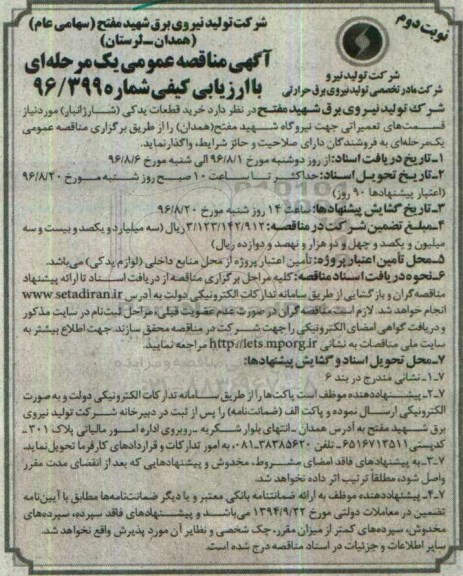 نوبت دوم
شرکت تولید نیروی برق شهید مفتح (سهامی عام)
(همدان-لرستان)
شرکت تولید نیرو
شرکت مادر تخصصی تولید نیروی برق حرارتی
آگهی مناقصه عمومی یک مرحله‌ای
با ارزیابی کیفی شماره ۹۶/۳۹۹
شرکت تولید نیروی برق شهید مفتح در نظر دارد خرید قطعات یدکی (شارژ انبار) مورد نیاز
قسمت‌های تعمیراتی جهت نیروگاه شهید مفتح (همدان) را از طریق برگزاری مناقصه عمومی
یک مرحله‌ای به فروشندگان دارای صلاحیت و حائز شرایط، واگذار نماید.
۱-تاریخ دریافت اسناد: از روز دوشنبه مورخ ۹۶/۸/۱ الی شنبه مورخ ۹۶/۸/۶
۲-تاریخ تحویل اسناد: حداکثر تا ساعت ۱۰ صبح روز شنبه مورخ ۹۶/۸/۲۰
(اعتبار پیشنهادها ۹۰ روز)
۳-تاریخ گشایش پیشنهادها: ساعت ۱۴ روز شنبه مورخ ۹۶/۸/۲۰
۴-مبلغ تضمین شرکت در مناقصه: ۳/۱۲۳/۱۴۲/۹۱۲ ریال (سه میلیارد و یکصد و بیست و سه
میلیون و یکصد و چهل و دو هزار و نهصد و دوازده ریال)
۵-محل تأمین اعتبار پروژه: تأمین اعتبار پروژه از محل منابع داخلی (لوازم یدکی) می‌باشد.
۶-نحوه دریافت اسناد مناقصه: کلیه مراحل برگزاری مناقصه از دریافت اسناد تا ارائه پیشنهاد
مناقصه‌گران و بازگشایی از طریق سامانه تدارکات الکترونیکی دولت به آدرس www.setadiran.ir
انجام خواهد شد. لازم است مناقصه گران در صورت عدم عضویت قبلی، مراحل ثبت نام در سایت مذکور
و دریافت گواهی امضای الکترونیکی را جهت شرکت در مناقصه محقق سازند. جهت اطلاع بیشتر به
سایت ملی مناقصات به نشانی http://iets.mporg.ir مراجعه نمایید.
۷-محل تحویل اسناد و گشایش پیشنهادها:
۷-۱-نشانی مندرج در بند ۶
۷-۲-پیشنهاددهنده موظف است پاکت‌ها را از طریق سامانه تدارکات الکترونیکی دولت و به صورت
الکترونیکی ارسال نموده و پاکت الف (ضمانت‌نامه) را پس از ثبت در دبیرخانه شرکت تولید نیروی
برق شهید مفتح به آدرس همدان-انتهای بلوار شکریه-روبروی اداره امور مالیاتی پلاک ۳۰۱-
کدپستی ۶۵۱۶۷۱۳۵۱۱-تلفن ۳۸۳۸۵۶۲۰-۰۸۱، به امور تدارکات و قراردادهای کارفرما تحویل نماید.
۷-۳-به پیشنهادهای فاقد امضای مشروط، مخدوش و پیشنهادهایی که بعد از انقضای مدت مقرر
واصل شود، مطلقاً ترتیب اثر داده نخواهد شد.
۷-۴-پیشنهاددهنده موظف به ارائه ضمانتنامه بانکی معتبر و یا دیگر ضمانت‌نامه‌ها مطابق با آیین‌نامه
تضمین در معاملات دولتی مورخ ۱۳۹۴/۹/۲۲ می‌باشد و پیشنهادهای فاقد سپرده، سپرده‌های
مخدوش، سپرده‌های کمتر از میزان مقرر، چک شخصی و نظایر آن مورد پذیرش واقع نخواهد شد.
سایر اطلاعات و جزئیات در اسناد مناقصه درج شده است.